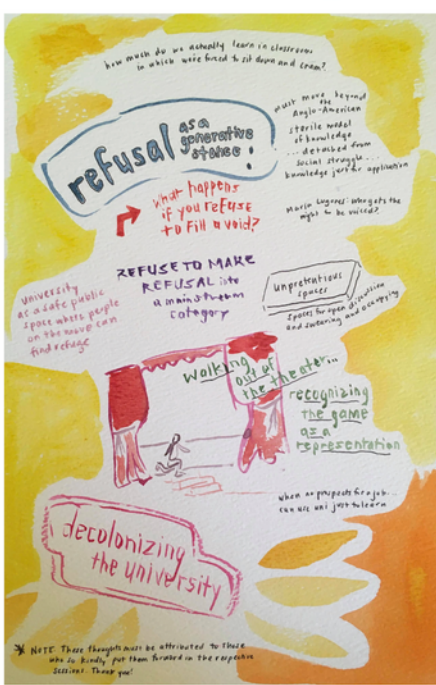 how much do we actually learn in classroom
in which we're forced to sit down and cram?
refusal as a
generative
stance!
must move beyond
the
Anglo-American
sterile model
of knowledge
... detached from
social struggle...
knowledge just for application
What happens
if you refuse
to fill a void?
María Lugones: who gets the
right to be voiced?
REFUSE TO MAKE
REFUSAL into
a mainstream
category
unpretentious
spaces
spaces for open discussion
and swearing and occupying
University
as a safe public
space where people
on the move can
find refuge
walking
out of
the theater...
recognizing
the game
as a
representation
when no prospects for a job...
can use uni just to learn
decolonizing
the university
* NOTE: These thoughts must be attributed to those
who so kindly put them forward in the respective
sessions. Thank you!